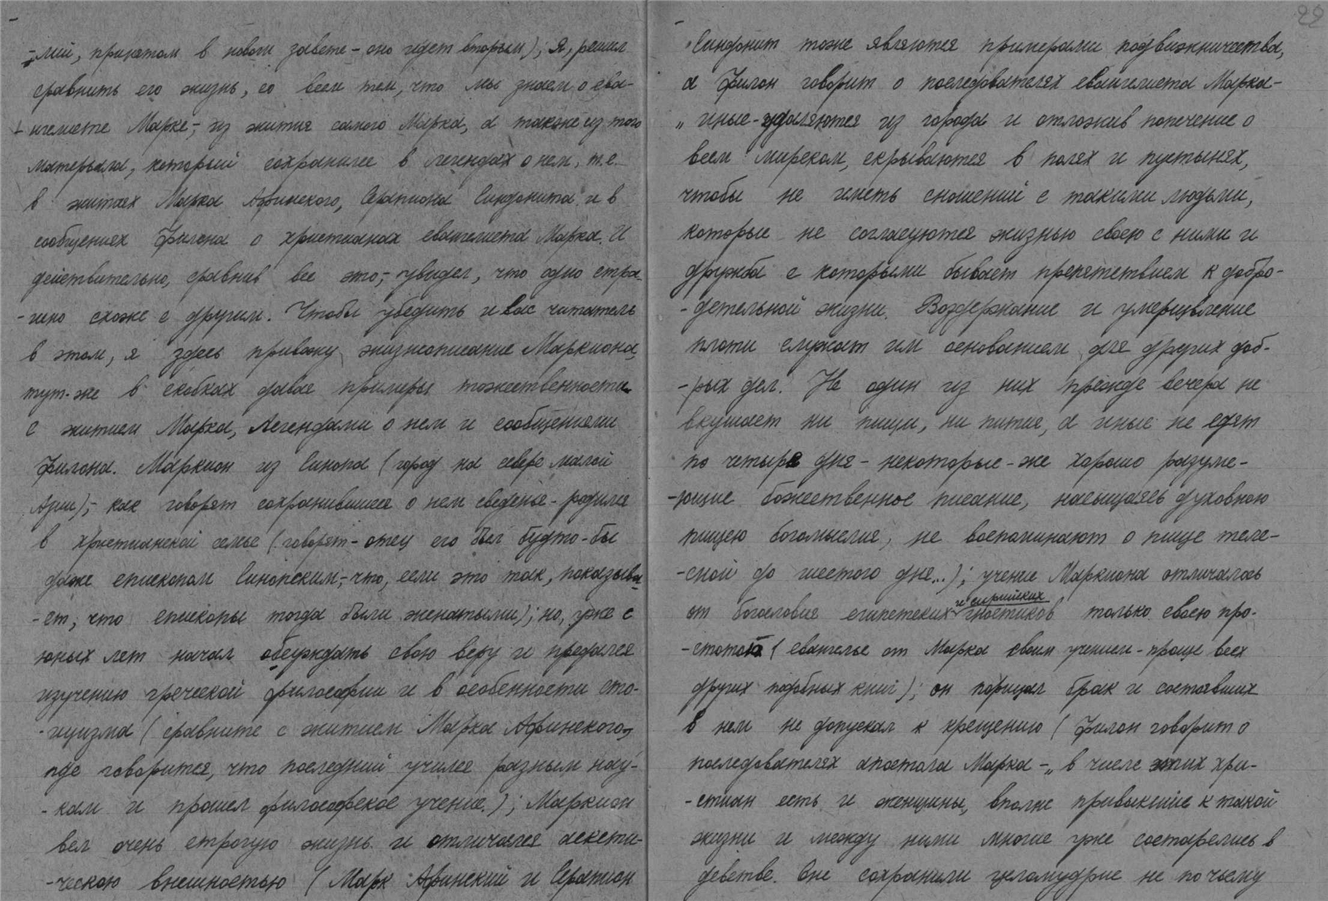 -лий, принятом в новом завете - оно идет вторым); Я, решил
сравнить его жизнь, со всем тем, что мы знаем о ева-
нгелисте Марке,- из жития самого Марка, а также из того
матерьяла, который сохранился в легендах о нем, т.е.
в житиях Марка Афинского, Серапиона Синдонита и в
сообщениях Филона о христианах евангелиста Марка. И
действительно, сравнив все это,- увидел, что одно стра-
-шно схоже с другим. Чтобы убедить и вас читатель
в этом, я здесь привожу жизнеописание Маркиона,
тут-же в скобках давая примеры тожественности
с житием Марка, Легендами о нем и сообщениями
Филона. Маркион из Синопа (город на севере малой
Азии),- как говорят сохранившиеся о нем сведенья - родился
в христианской семье (говорят - отец его был будто-бы
даже епископом Синопским,- что, если это так, показыва-
-ет, что епископы тогда были женатыми); но, уже с
юных лет начал обсуждать свою веру и предался
изучению греческой философии и в особенности сто-
-ицизма (сравните с житием Марка Афинского,
где говорится, что последний учился разным нау-
-кам и прошел философское учение.); Маркион
вел очень строгую жизнь и отличался аскети-
-ческою внешностью (Марк Афинский и Серапион
29
Синдонит тоже являются примерами подвижничества,
а Филон говорит о последователях евангелиста Марка-
„ иные - удаляются из города и отложив попечение о
всем мирском, скрываются в полях и пустынях,
чтобы не иметь сношений с такими людьми,
которые не согласуются жизнью своею с ними и
дружба с которыми бывает препятствием к добро-
-детельной жизни. Воздержание и умерщвление
плоти служат им основанием для других доб-
-рых дел. Не один из них прежде вечера не
вкушает ни пищи, ни питие, а иные не едят
по четыре дня - некоторые-же хорошо разуме-
-ющие божественное писание, насыщаясь духовною
пищею богомыслия, не воспоминают о пище теле-
-сной до шестого дня...); учение Маркиона отличалось
от богословия египетских и сирийских гностиков только своею про-
-стотой (евангелье от Марка своим учением - проще всех
других подобных книг); он порицал брак и состоявших
в нем не допускал к крещению (Филон говорит о
последователях апостола Марка - „ в числе этих хри-
-стиан есть и женщины, вполне привыкшие к такой
жизни и между ними многие уже состарелись в
девстве. Оне сохранили целомудрие не по чьему